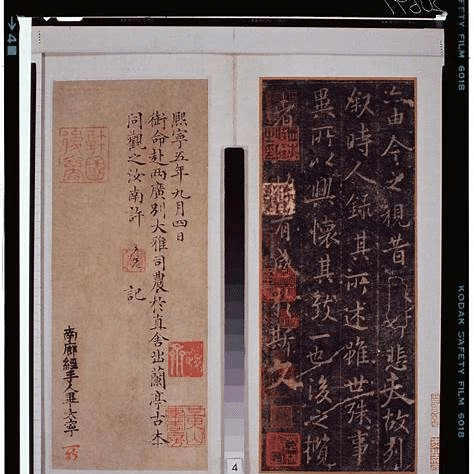 亦由今之視昔悲夫故列
敘時人錄其所述雖世殊事
異所以興懷其致一也後之攬
者亦將有感於斯文
熙寧五年九月四日
銜命赴兩廣別大雅司農於直舍出蘭亭古本
同觀之汝南許 記
南廊經手人
SAFETY FILM 6018
KODAK SAFETY FILM 6018
4
4